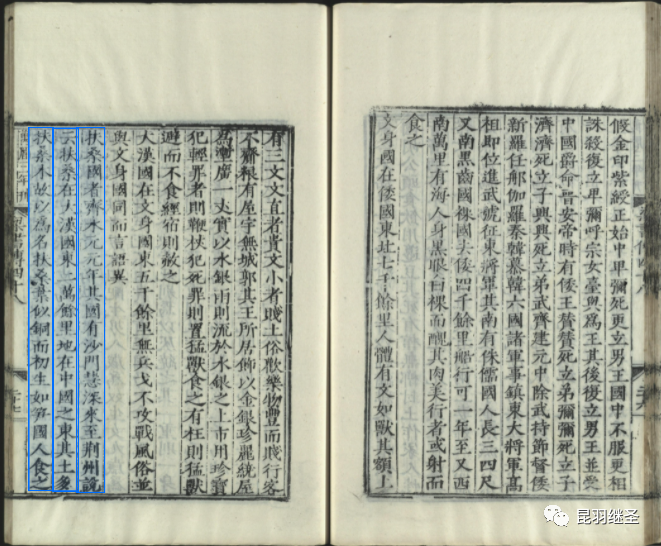 假金印紫綬正始中卑彌死更立男王國中不服更相
誅殺復立卑彌呼宗女臺與為王其後復立男王並受
中國爵命晉安帝時有倭王賛賛死立弟彌彌死立子
濟濟死立子興興死立弟武齊建元中除武持節督倭
新羅任那伽羅秦韓慕韓六國諸軍事鎮東大將軍高
祖即位進武號征東將軍其南有侏儒國人長三四尺
又南黑齒國裸國去倭四千餘里船行可一年至又西
南萬里有海人身黑眼白裸而醜其肉美行者或射而
食之
文身國在倭國東北七千餘里人體有文如獸其額上
有三文文直者貴文小者賤土俗歡樂物豐而賤行客
不齎粮有屋宇無城郭其王所居飾以金銀珍麗繞屋
為壍廣一丈實以水銀雨則流於水銀之上市用珍寶
犯輕罪者則鞭杖犯死罪則置猛獸食之有枉則猛獸
避而不食經宿則赦之
大漢國在文身國東五千餘里無兵戈不攻戰風俗並
與文身國同而言語異
扶桑國者齊永元元年其國有沙門慧深來至荊州說
云扶桑在大漢國東二萬餘里地在中國之東其土多
扶桑木故以為名扶桑葉似銅而初生如笋國人食之
昆羽继圣